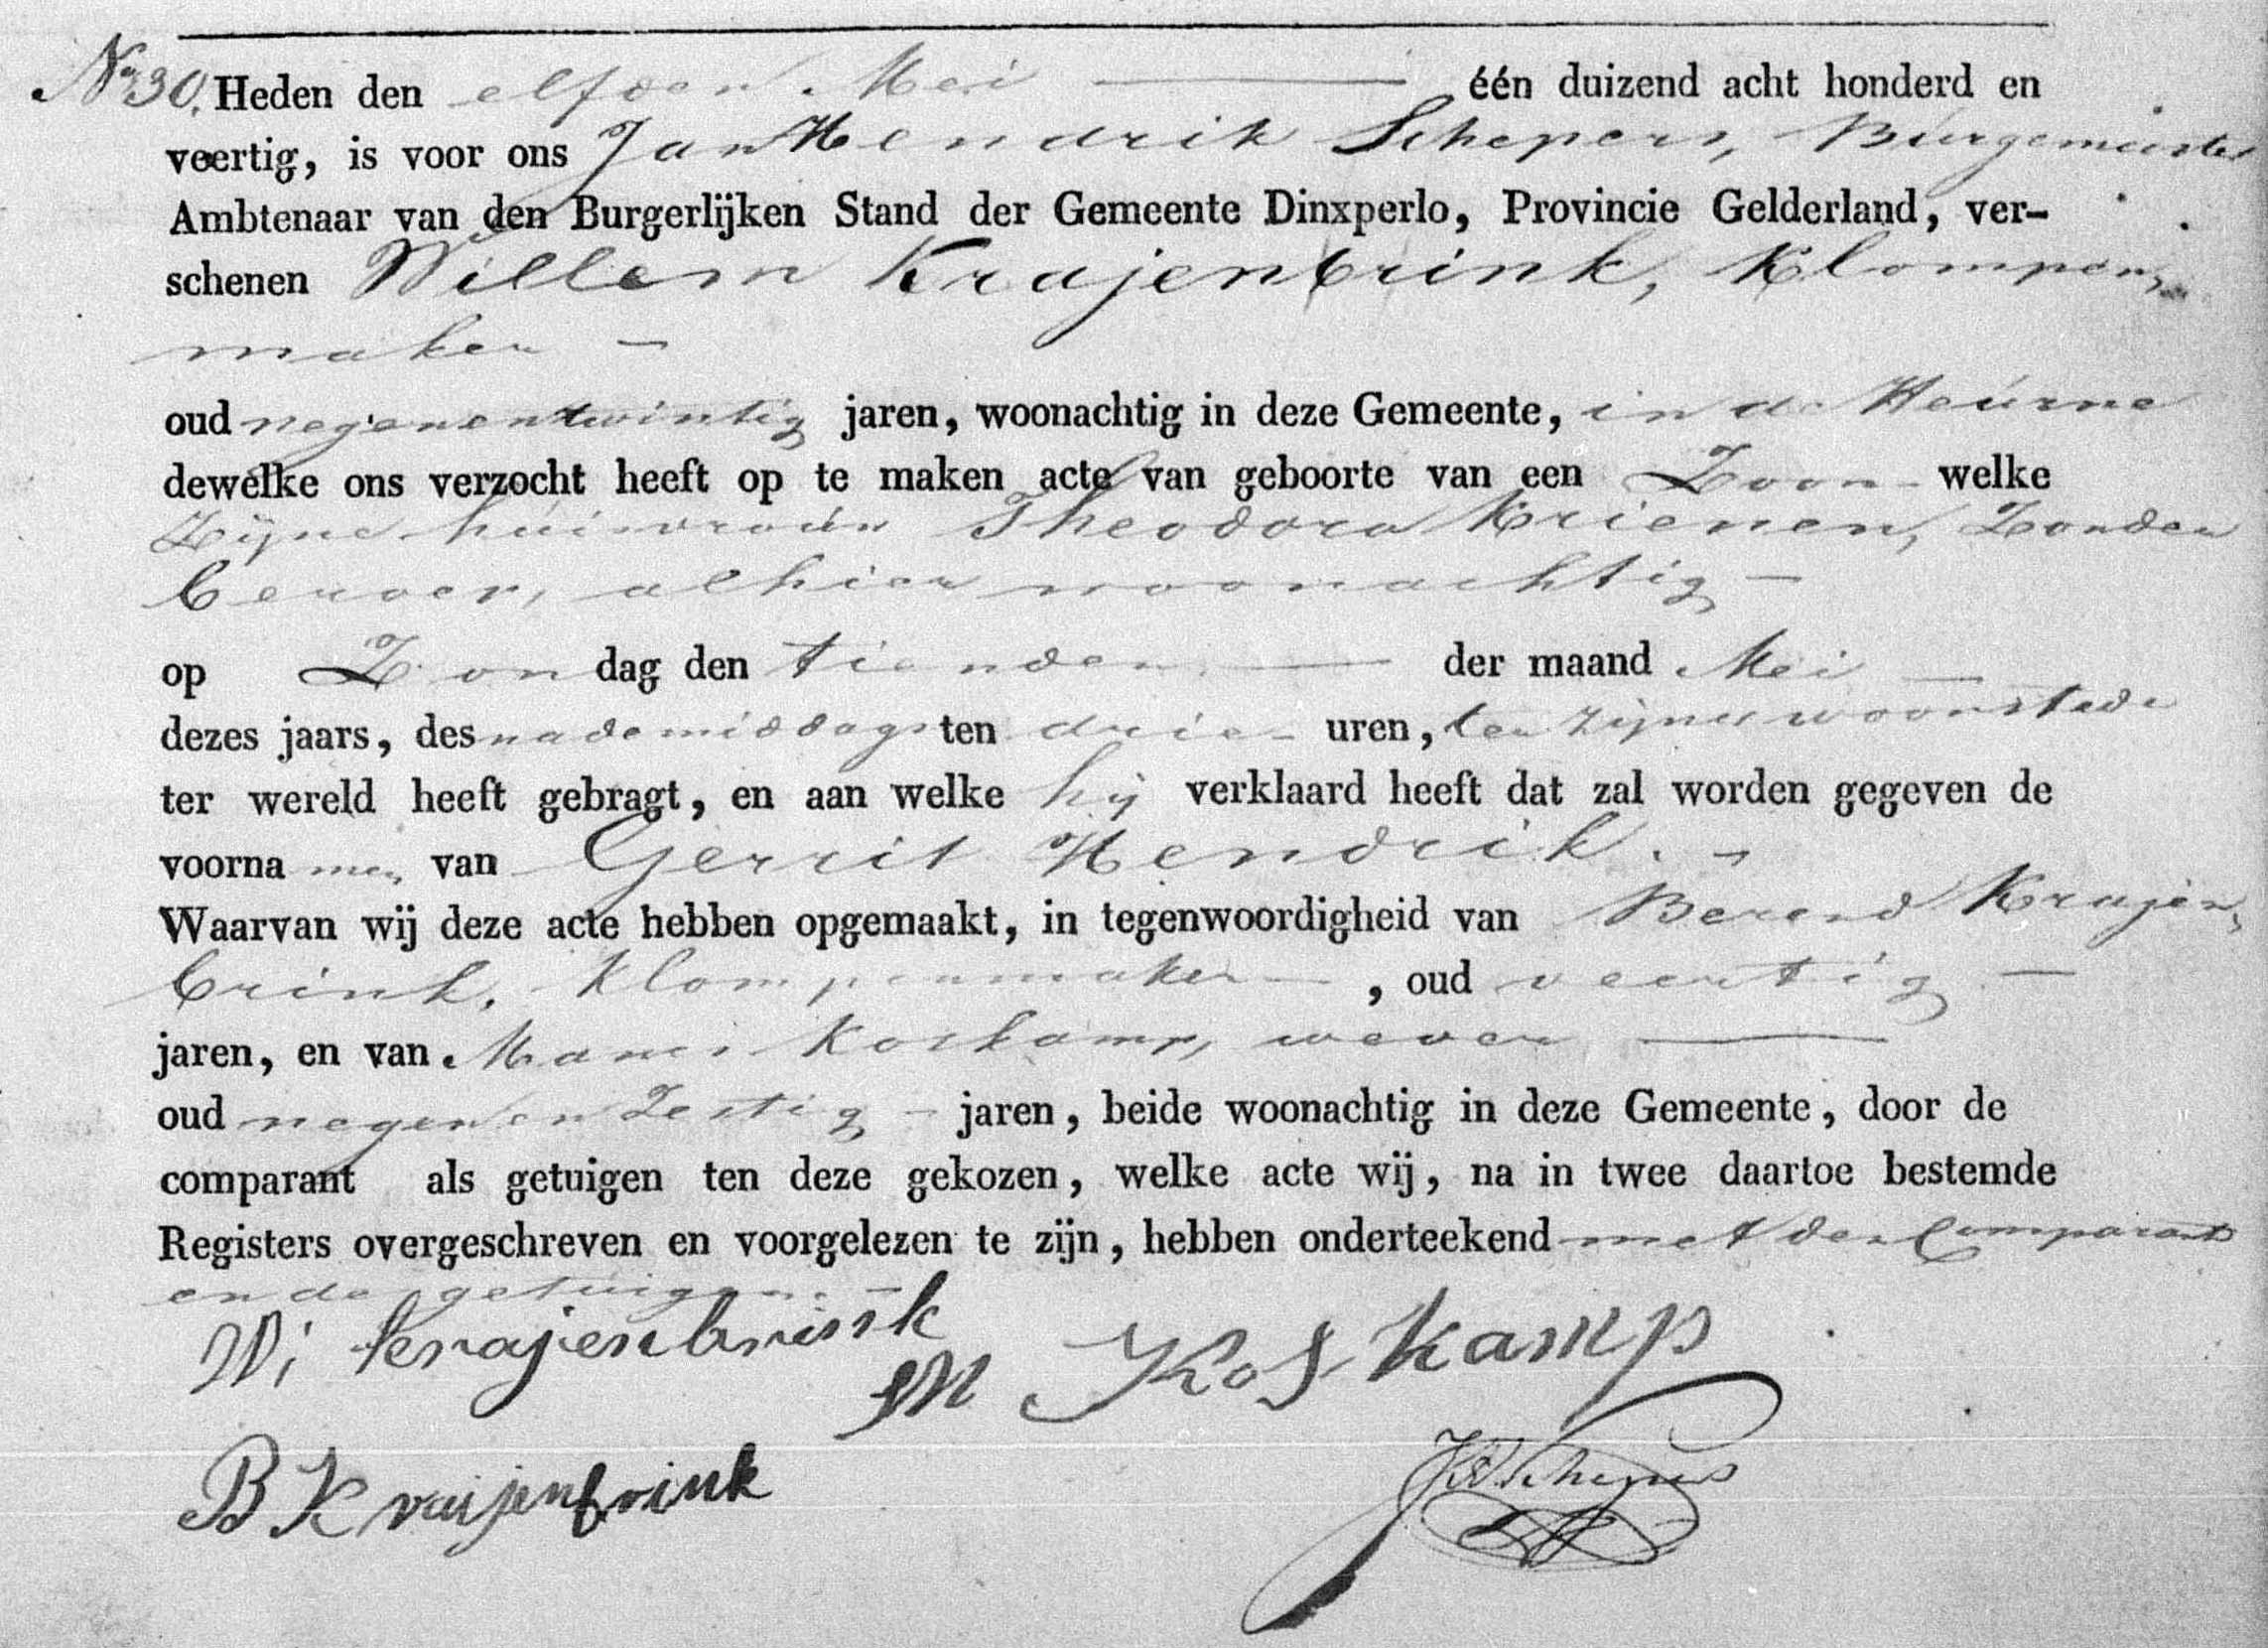 No 30. Heden den elfden Mei — één duizend acht honderd en
veertig, is voor ons Jan Hendrik Schepers, Burgemeester
Ambtenaar van den Burgerlijken Stand der Gemeente Dinxperlo, Provincie Gelderland, ver-
schenen Willem Krajenbrink, Klompen,
maker —
oud negenentwintig jaren, woonachtig in deze Gemeente, in de Heurne
dewelke ons verzocht heeft op te maken acte van geboorte van een Zoon welke
Zijne huisvrouw Theodora Krienen, Zonder
beroep, alhier woonachtig —
op Zondag den tienden — der maand Mei —
dezes jaars, des nademiddags ten drie uren, ten zijnen woonstede
ter wereld heeft gebragt, en aan welke hij verklaard heeft dat zal worden gegeven de
voornamen van Gerrit Hendrik. —
Waarvan wij deze acte hebben opgemaakt, in tegenwoordigheid van Berend Krajen,
brink, Klompenmaker —, oud veertig —
jaren, en van Manes Koskamp, wever —
oud negen en Zestig — jaren, beide woonachtig in deze Gemeente, door de
comparant als getuigen ten deze gekozen, welke acte wij, na in twee daartoe bestemde
Registers overgeschreven en voorgelezen te zijn, hebben onderteekend met den Comparant
en de getuigen. —
W Krajenbrink
M Koskamp
B Kraijenbrink
JH Schepers